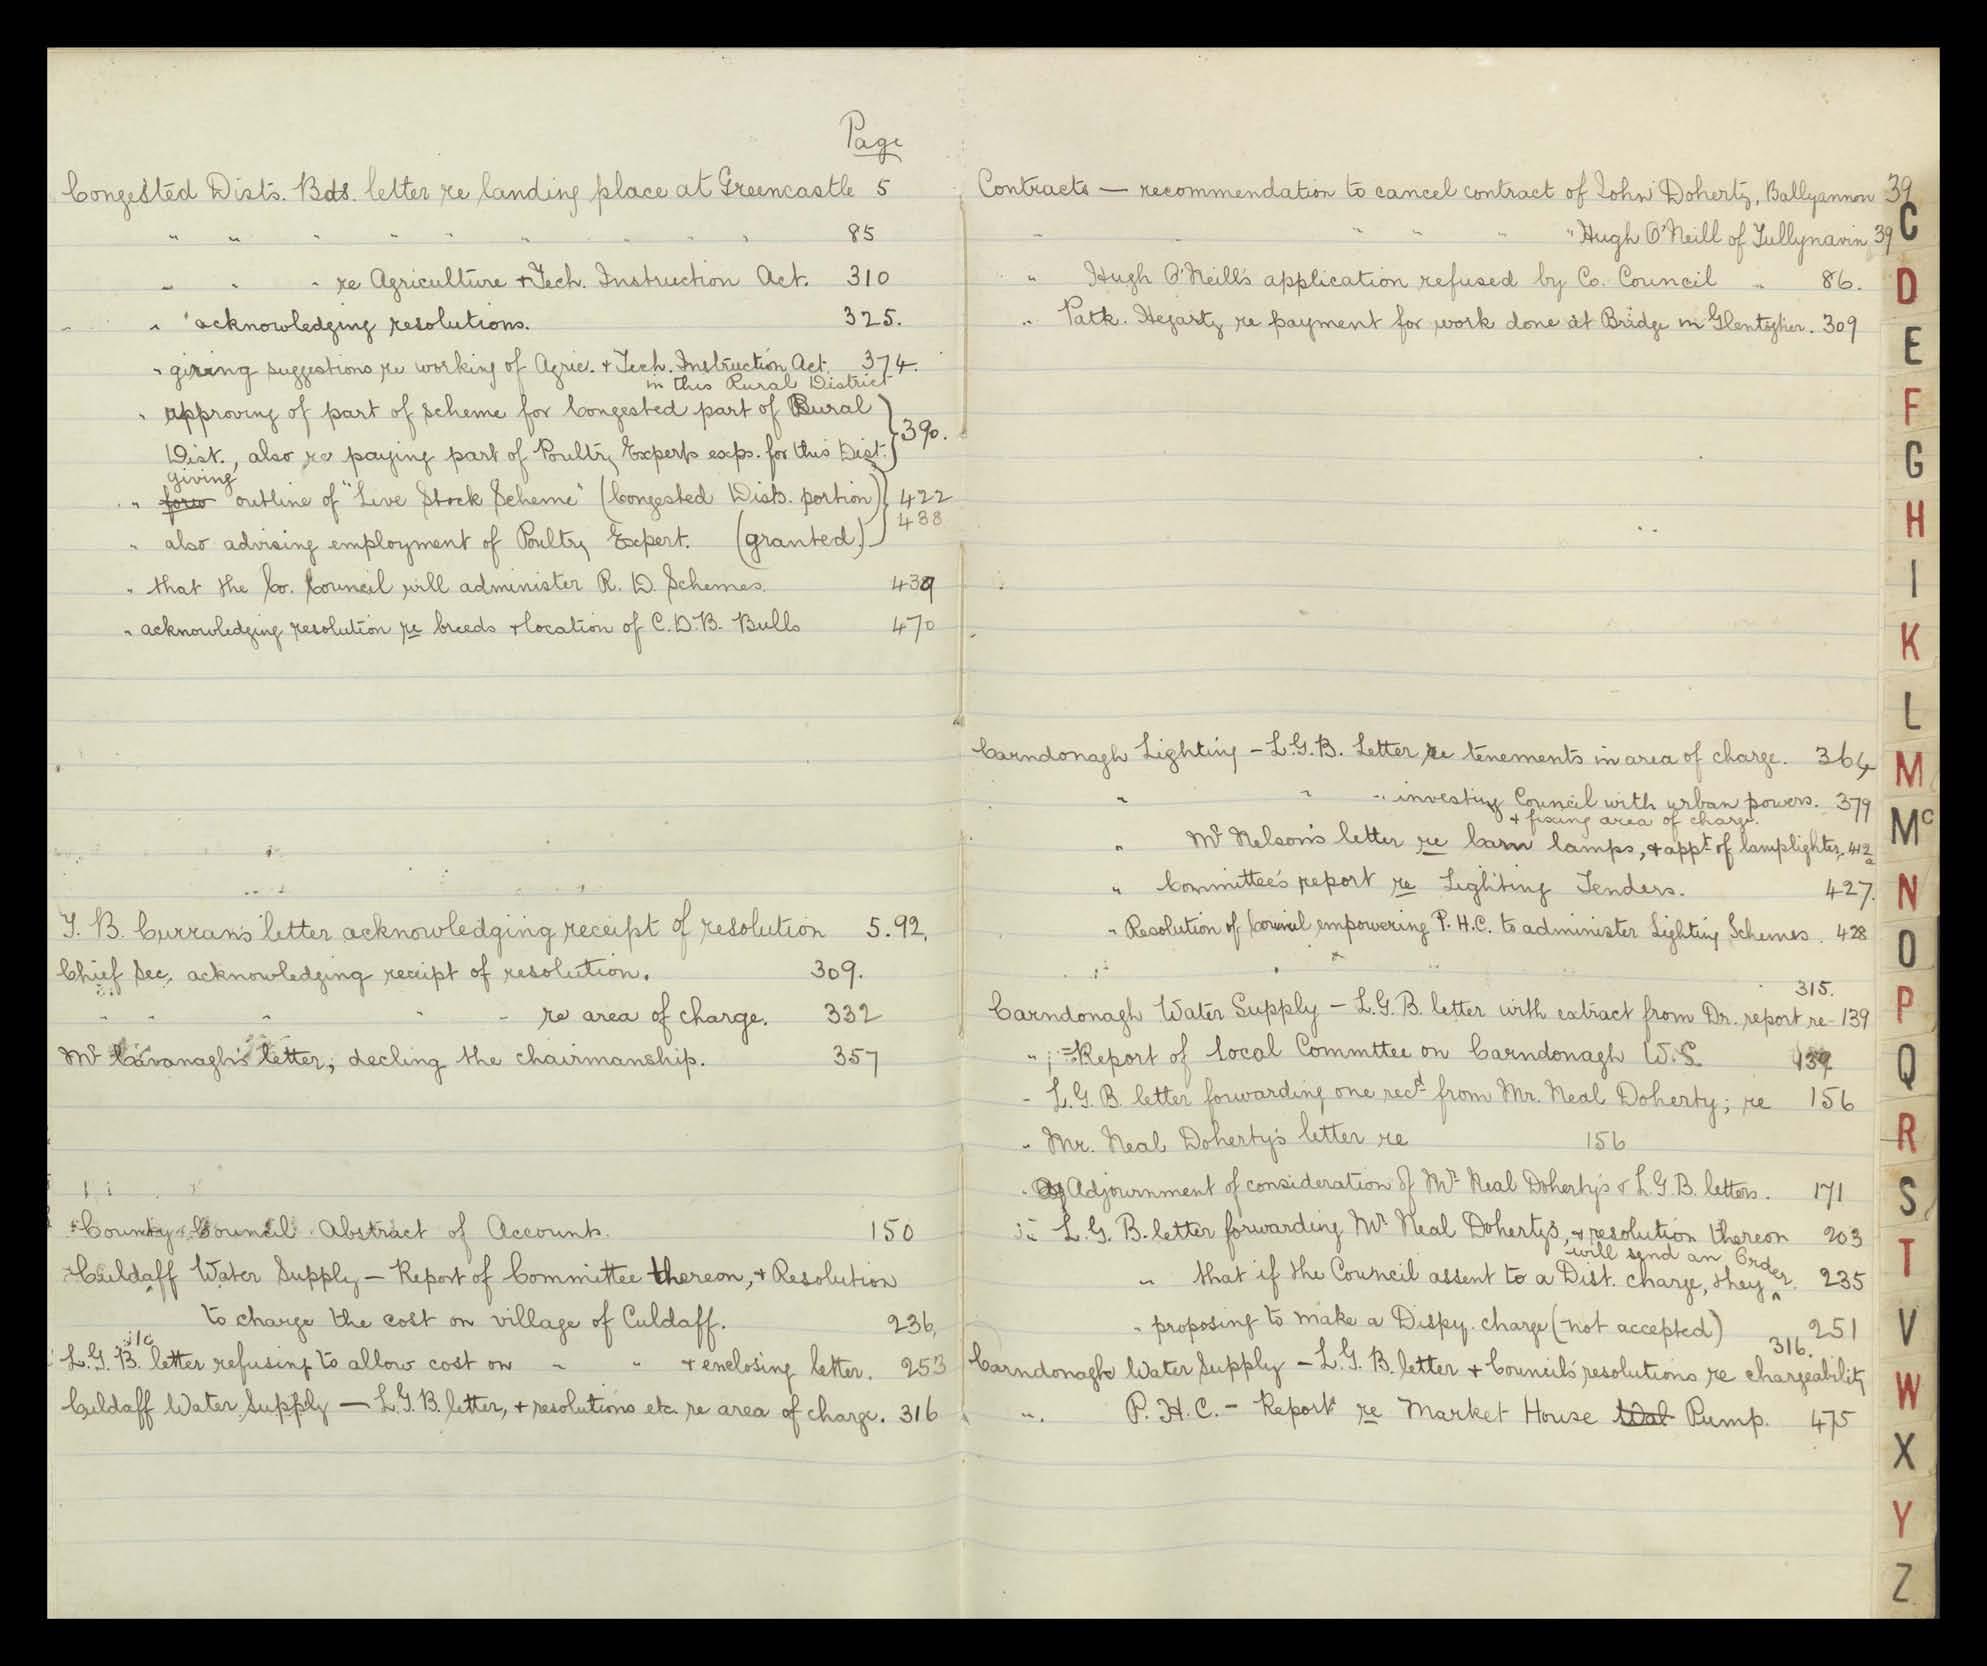 Page
Congested Dists. Bds. letter re landing place at Greencastle 5
" " " " " " " " " 85
" " " re Agriculture + Tech. Instruction Act. 310
" " acknowledging resolutions. 325.
" giving suggestions re working of Agric. + Tech. Instruction Act. 374.
in this Rural District
" approving of part of scheme for Congested part of Rural
Dist., also re paying part of Poultry Experts exps. for this Dist. } 390.
giving
" outline of "Live Stock Scheme" (Congested Dists. portion) } 422
438
" also advising employment of Poultry Expert. (granted)
" that the Co. Council will administer R. D. Schemes. 439
" acknowledging resolution re breeds + location of C.D.B. Bulls 470
T. B. Curran's letter acknowledging receipt of resolution 5.92.
Chief Sec. acknowledging receipt of resolution. 309.
" " " " " re area of charge. 332
Mr Cavanagh's letter, decling the chairmanship. 357
County Council Abstract of Accounts. 150
Culdaff Water Supply — Report of Committee thereon, + Resolution
to charge the cost on village of Culdaff. 236.
L.G.B. letter refusing to allow cost on " " + enclosing letter. 253
Culdaff Water Supply — L.G.B. letter, + resolutions etc. re area of charge. 316
Contracts — recommendation to cancel contract of John Doherty, Ballyannon 39
" " " " " " Hugh O'Neill of Tullynavin 39
" Hugh O'Neill's application refused by Co. Council " 86.
" Patk. Hegarty re payment for work done at Bridge in Glentogher. 309
Carndonagh Lighting — L.G.B. Letter re tenements in area of charge. 364
" " " investing Council with urban powers. 379
+ fixing area of charge.
" Mr Nelson's letter re Carn lamps, + appt of lamplighter. 412
" Committee's report re Lighting Tenders. 427.
" Resolution of Council empowering P.H.C. to administer Lighting Schemes. 428
315.
Carndonagh Water Supply — L.G.B. letter with extract from Dr. report re — 139
" Report of Local Committee on Carndonagh W.S. 139
" L.G.B. letter forwarding one recd from Mr. Neal Doherty; re 156
" Mr. Neal Doherty's letter re 156
" Adjournment of consideration of Mr Neal Doherty's & L.G.B. letters. 171
" L.G.B. letter forwarding Mr Neal Doherty's, + resolution thereon 203
will send an Order
" that if the Council assent to a Dist. charge, they ^. 235
" proposing to make a Dispy. charge (not accepted) 251
316.
Carndonagh Water Supply — L.G.B. letter + Council's resolutions re chargeability
" P.H.C. — Report re Market House Wat Pump. 475
C
D
E
F
G
H
I
K
L
M
Mc
N
O
P
Q
R
S
T
V
W
X
Y
Z